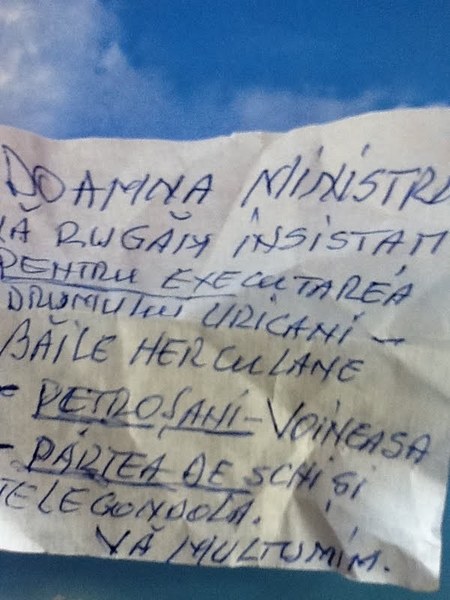 DOAMNA MINISTRU
VĂ RUGĂM INSISTAM
PENTRU EXECUTAREA
DRUMULUI URICANI -
BĂILE HERCULANE
- PETROȘANI - VOINEASA
- PARTEA DE SCHI ȘI
TELEGONDOLA.
VĂ MULTUMIM.